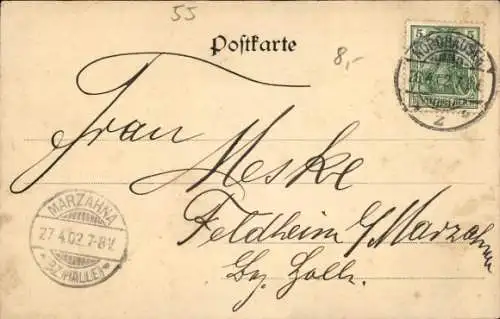 55
Postkarte
8,-
5 5
NORDHAUSEN
2
Frau Meske
Feldheim b/Marzahna
Bz. Halle.
MARZAHNA
27.4.02.7-8V.
* BZ. HALLE *